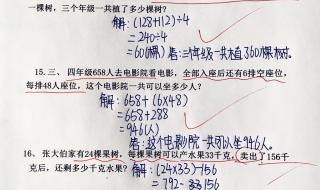 一棵树，三个年级一共植了多少棵树？
解：(128+112)÷4
=240÷4
=60(棵) 答：三个年级一共植360棵树.
15. 三、四年级658人去电影院看电影，全部入座后还有6排空座位，
每排48人座位，这个电影院一共可以坐多少人？
解：658+(6×48)
=658+288
=946(人)
答：这个电影院一共可以坐946人.
16、张大伯家有24棵果树，每棵果树可以产水果33千克，卖出了156千
克后，还剩多少千克水果？ 解：(24×33)-156
=792-156